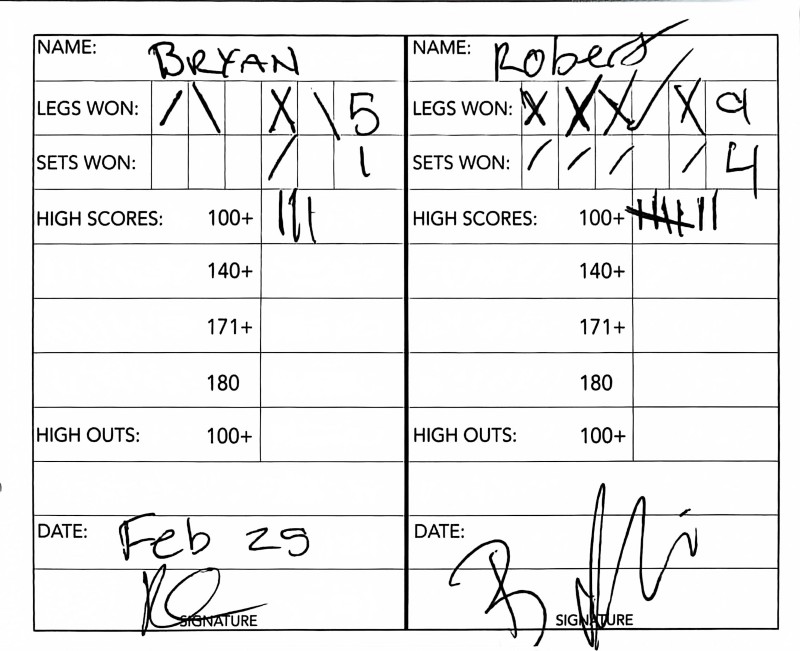 NAME: BRYAN NAME: Robert
LEGS WON: / \ X \ 5 LEGS WON: X X X / X 9
SETS WON: / 1 SETS WON: / / / / 4
HIGH SCORES: 100+ ||| HIGH SCORES: 100+ |||| ||
140+ 140+
171+ 171+
180 180
HIGH OUTS: 100+ HIGH OUTS: 100+
DATE: Feb 29 DATE:
SIGNATURE SIGNATURE